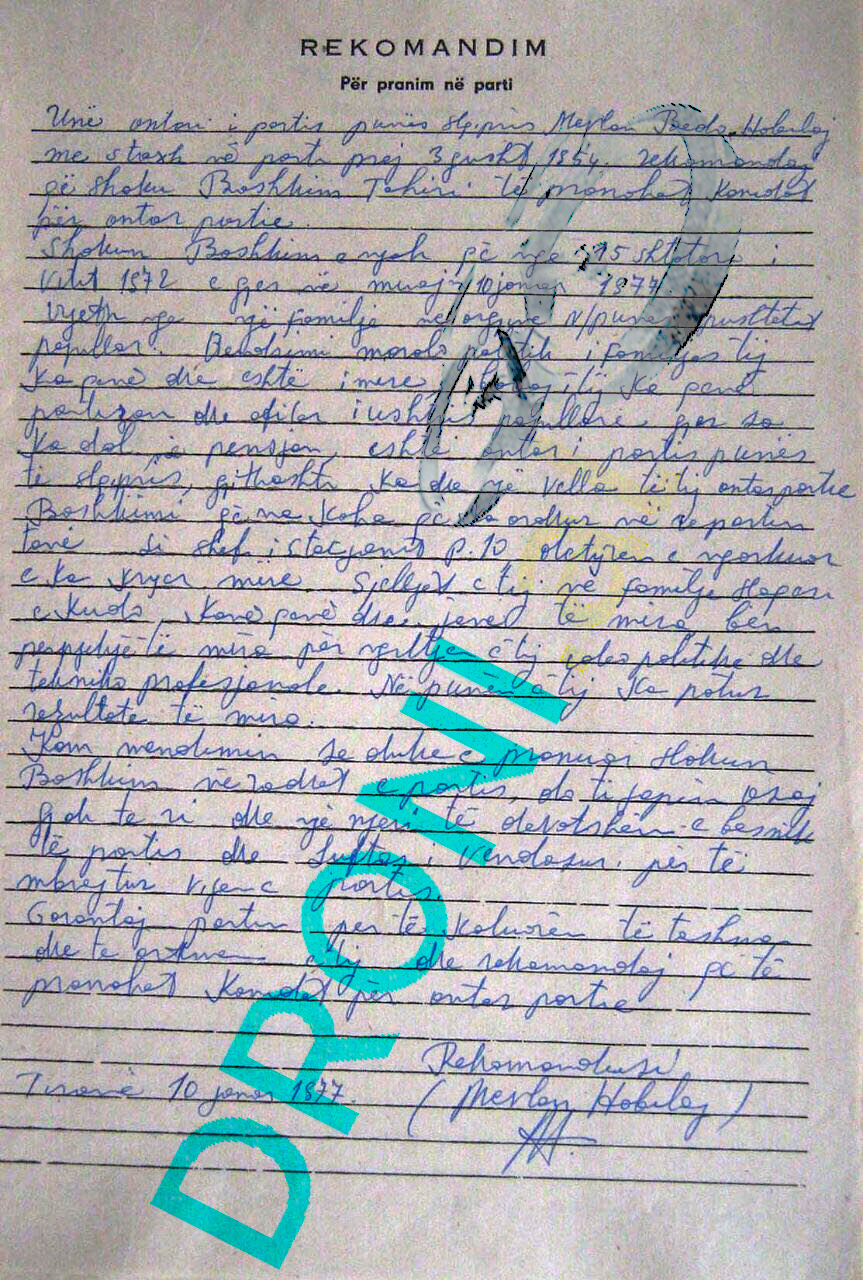 REKOMANDIM
Për pranim në parti
Unë antari i partis punës shqipris Mevlan Hobilaj
me stazh në parti prej 3 gusht 1954. rekomandoj
që shoku Bashkim Tahiri të pranohet Kandidat
për antar partie.
Shokun Bashkim e njoh që nga 15 shtatori i
Vitit 1972 e gjer në muajn 10 janar 1977
Vjen nga një familje pushtetit
popullor. Qendrimi moralo politik i familjes tij
Ka qenë dhe eshtë i mirë, i tij Ka qenë
partizan dhe oficer i ushtris popullore, gjer sa
Ka dal në pensjon, eshtë antar i partis punës
të shqipris, gjithashtu Ka dhe një vella të tij antar partie
Bashkimi që na Koha që ka ardhur në repartin
tonë si shef i stacjonit P.10 detyren e ngarkuar
e ka kryer mirë. Sjelljet e tij në familje shoqeri
e kudo, Kanë qenë dhe janë të mira bën
perpjekje të mira për ngritjen e tij ideo politike dhe
tekniko profesjonale. Në punën e tij Ka patur
rezultate të mira.
Kam mendimin se duke e pranuar shokun
Bashkim në radhët e partis, do ti japim asaj
gjak te ri dhe një njeri të devotshëm e besnik
të partis dhe luftar i Vendosur për të
mbrojtur vijen e partis.
Garantoj partin per të Kaluarën të tashmen
dhe te ardhmen e tij dhe rekomandoj që të
pranohet Kandidat për antar partie
Rekomanduesi
Tiranë 10 janar 1977.
(Mevlan Hobilaj)
DRONI